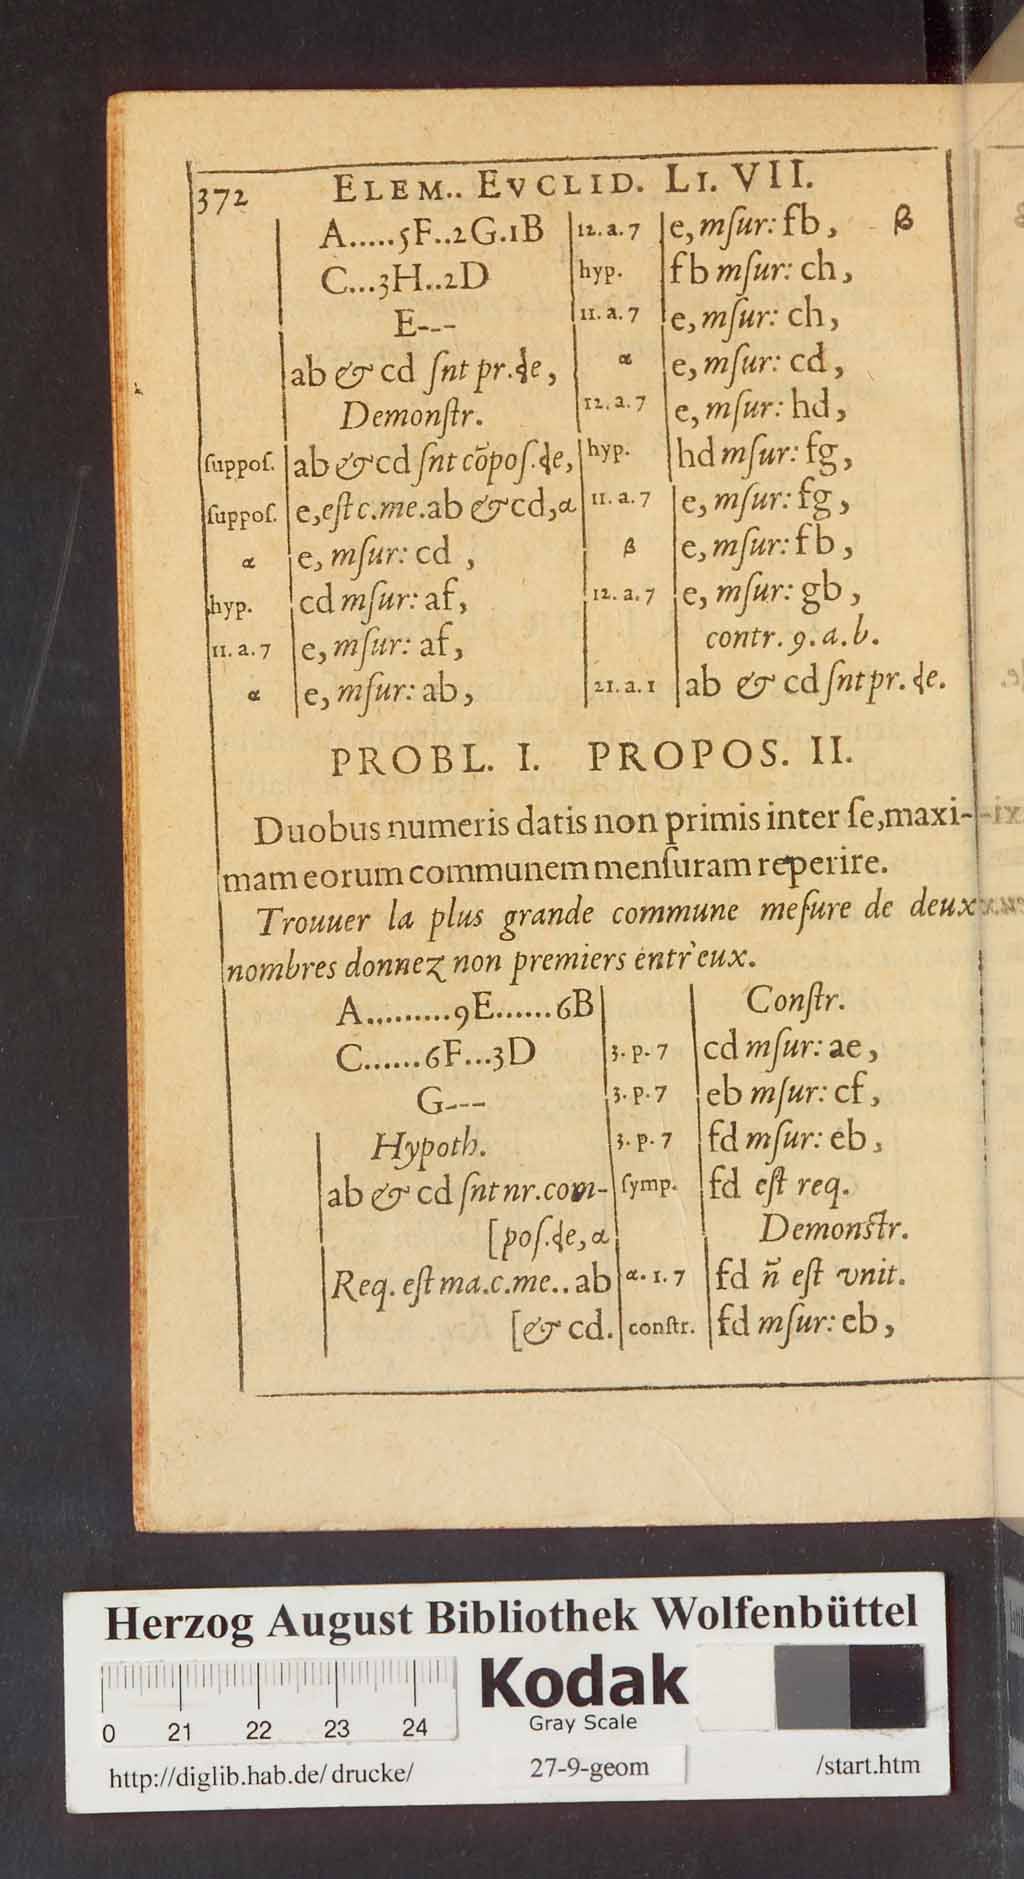 372 ELEM.. EVCLID. LI. VII.
A.....5F..2G.1B
C...3H..2D
E---
ab & cd ſnt pr.₰e,
Demonſtr.
ſuppoſ. ab & cd ſnt cõpoſ.₰e,
ſuppoſ. e, eſt c.me. ab & cd, α
α e, mſur: cd ,
hyp. cd mſur: af,
11. a. 7 e, mſur: af,
α e, mſur: ab,
12. a. 7 e, mſur: fb, β
hyp. fb mſur: ch,
11. a. 7 e, mſur: ch,
α e, mſur: cd,
12. a. 7 e, mſur: hd,
hyp. hd mſur: fg,
11. a. 7 e, mſur: fg,
β e, mſur: fb,
12. a. 7 e, mſur: gb,
contr. 9. a. b.
21. a. 1 ab & cd ſnt pr. ₰e.
PROBL. I. PROPOS. II.
Duobus numeris datis non primis inter ſe, maxi-
mam eorum communem menſuram reperire.
Trouuer la plus grande commune meſure de deux
nombres donnez non premiers entr'eux.
A.........9E......6B
C......6F...3D
G---
Hypoth.
ab & cd ſnt nr.com-
[poſ.₰e, α
Req. eſt ma.c.me.. ab
[& cd.
Conſtr.
3. p. 7 cd mſur: ae,
3. p. 7 eb mſur: cf,
3. p. 7 fd mſur: eb,
ſymp. fd eſt req.
Demonſtr.
α. 1. 7 fd ñ eſt vnit.
conſtr. fd mſur: eb,
Herzog August Bibliothek Wolfenbüttel
0 21 22 23 24
Kodak
Gray Scale
http://diglib.hab.de/drucke/ 27-9-geom /start.htm